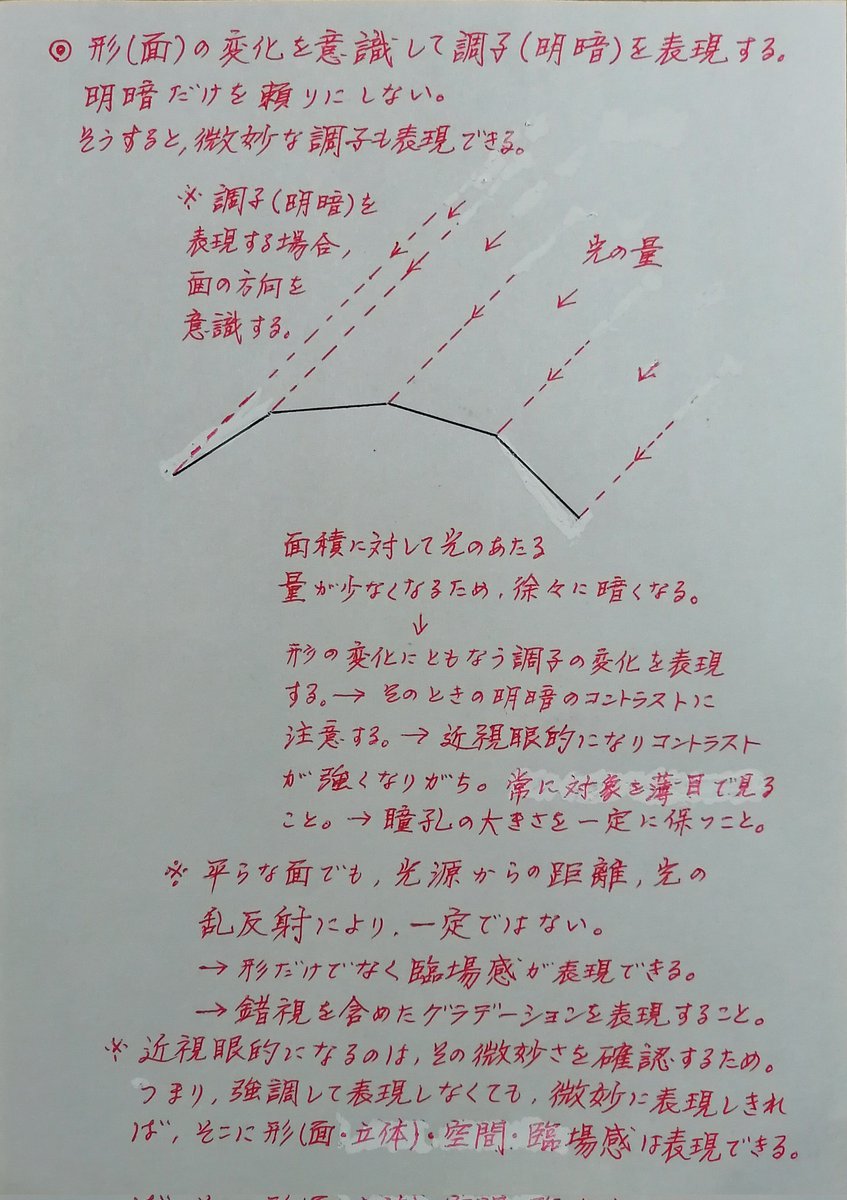 ◉ 形(面)の変化を意識して調子(明暗)を表現する。
明暗だけを頼りにしない。
そうすると,微妙な調子も表現できる。
※ 調子(明暗)を
表現する場合,
面の方向を
意識する。
光の量
面積に対して光のあたる
量が少なくなるため,徐々に暗くなる。
↓
形の変化にともなう調子の変化を表現
する。→ そのときの明暗のコントラストに
注意する。→ 近視眼的になりコントラスト
が強くなりがち。常に対象を薄目で見る
こと。→ 瞳孔の大きさを一定に保つこと。
※ 平らな面でも,光源からの距離,光の
乱反射により,一定ではない。
→ 形だけでなく臨場感が表現できる。
→ 錯視を含めたグラデーションを表現すること。
※ 近視眼的になるのは,その微妙さを確認するため。
つまり,強調して表現しなくても,微妙に表現しきれ
ば,そこに形(面・立体)・空間・臨場感は表現できる。